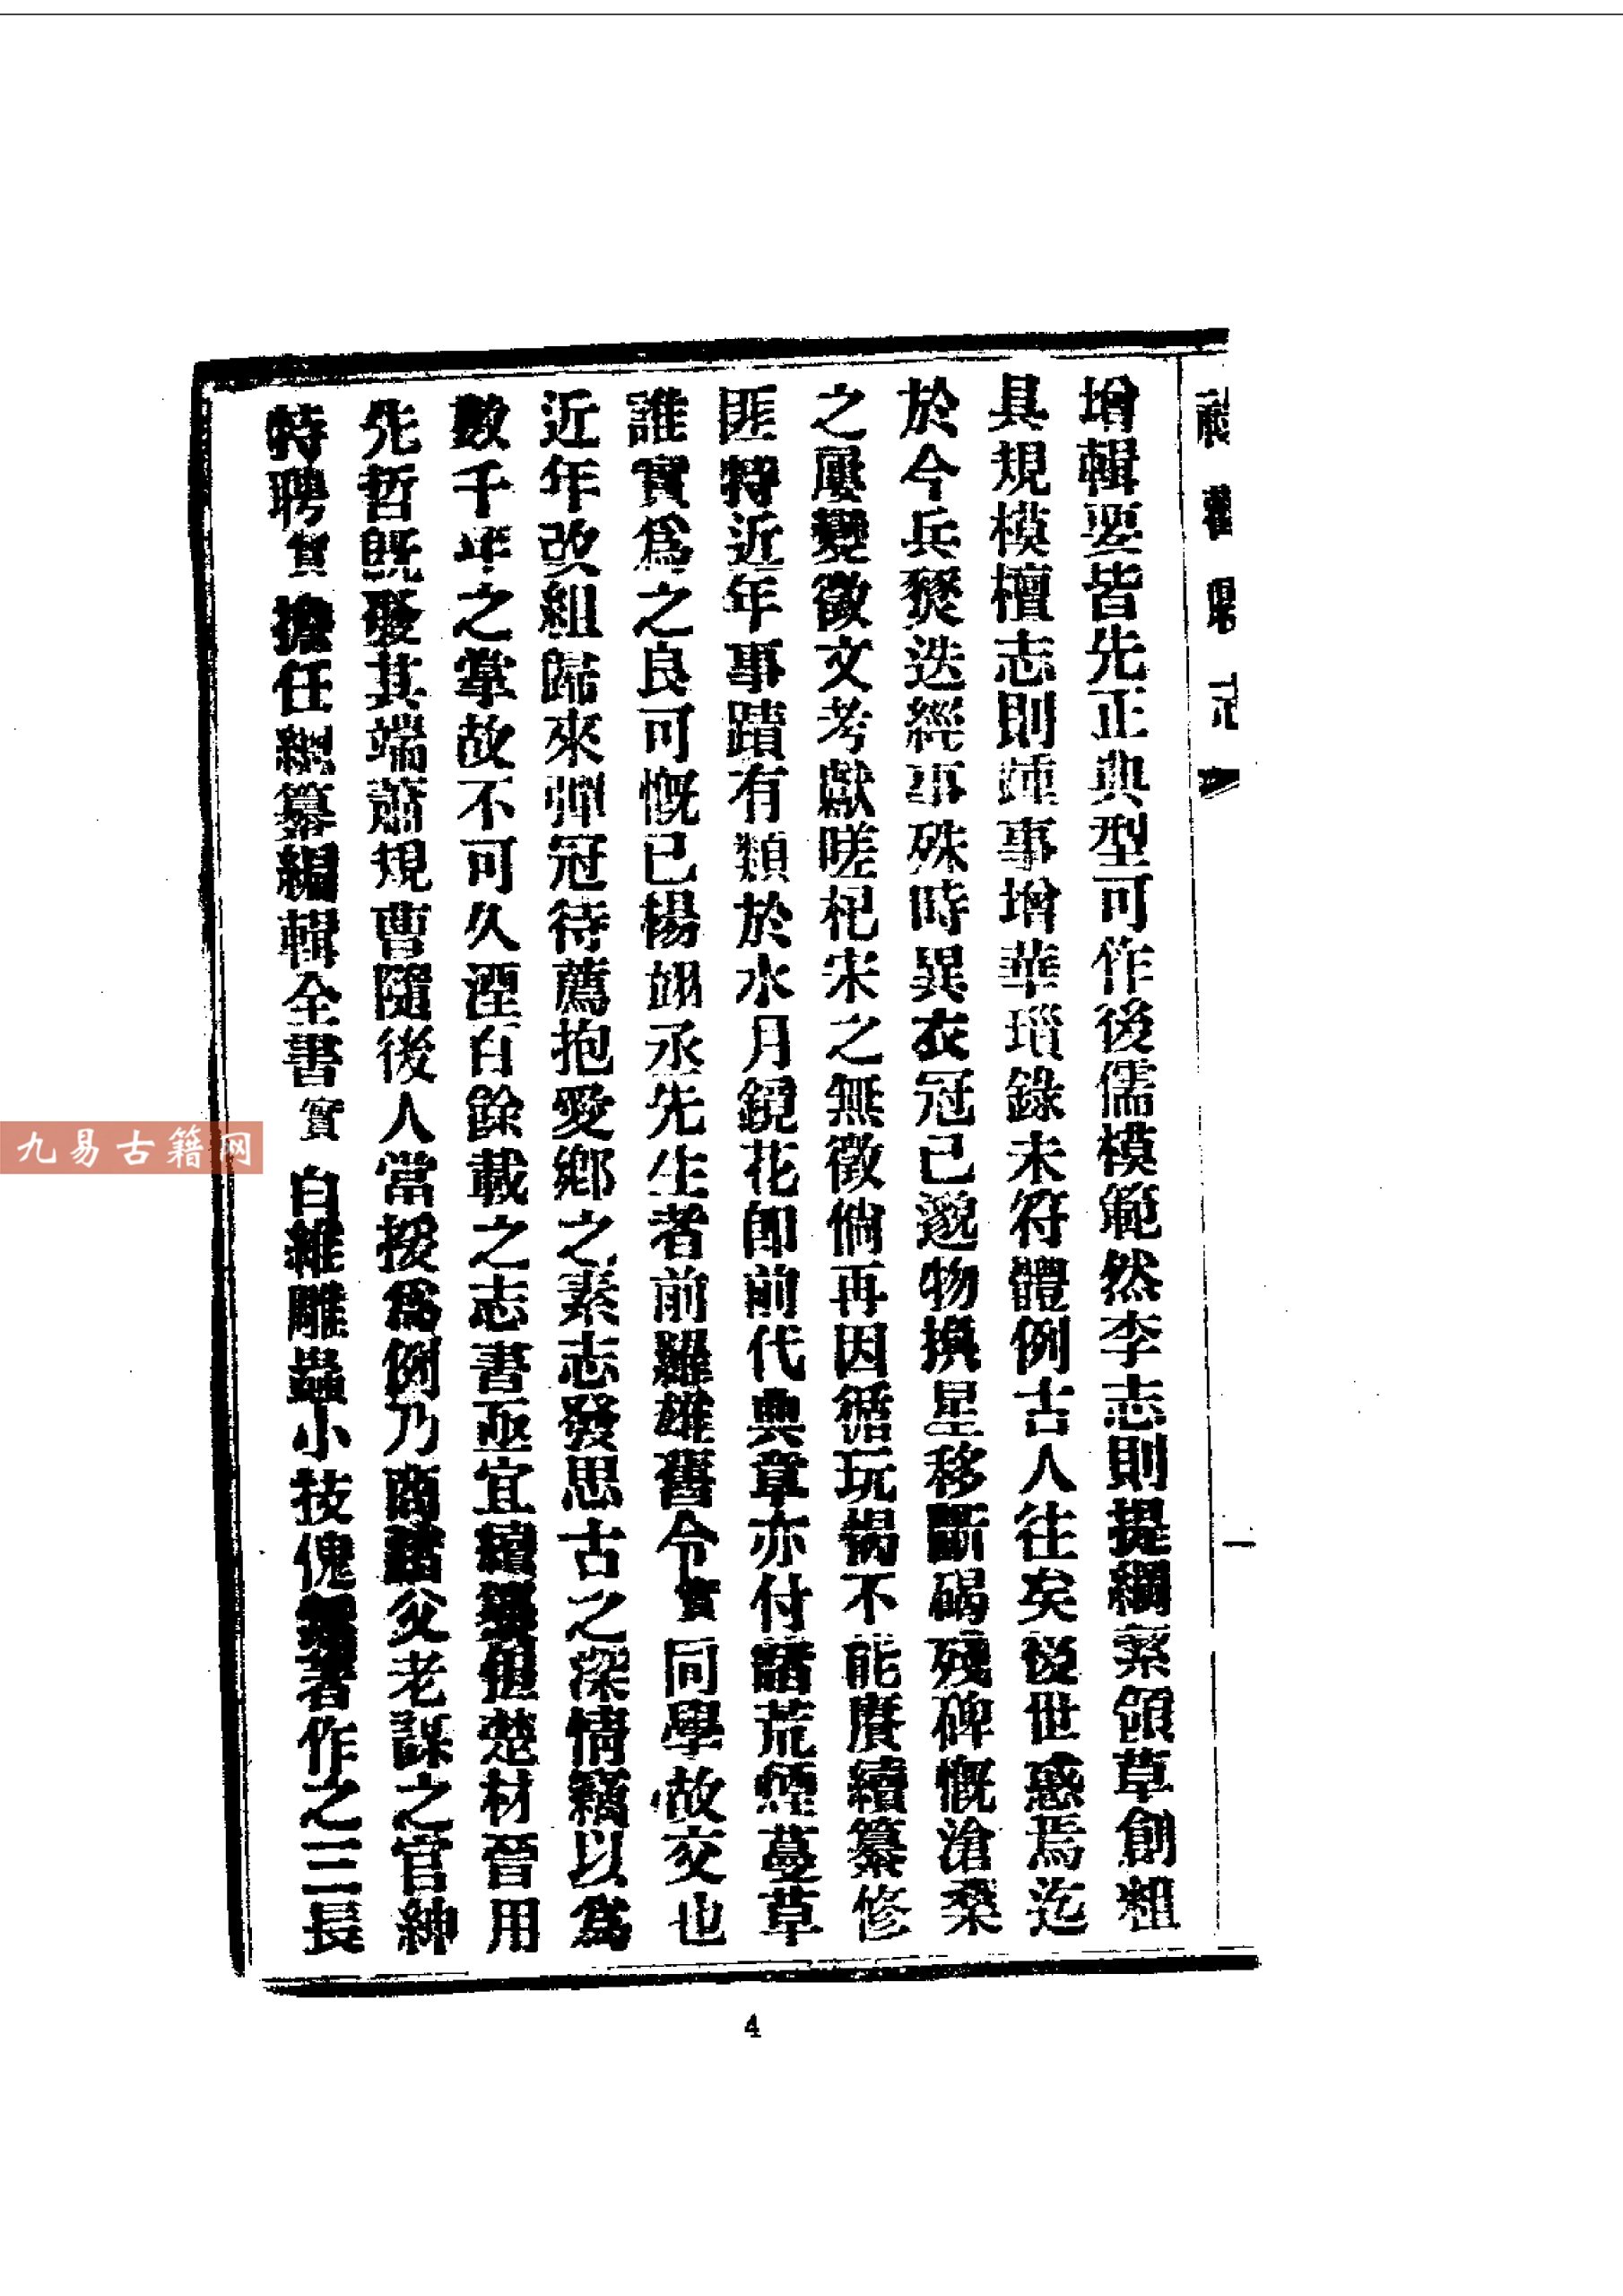 縣志
一
增輯要皆先正典型可作後儒模範然李志則提綱絜領草創粗
具規模檀志則踵事增華瑣錄未符體例古人往矣後世惑焉迄
於今兵燹迭經事殊時異衣冠已邈物換星移斷碣殘碑慨滄桑
之屢變徵文考獻嗟杞宋之無徵倘再因循玩愒不能賡續纂修
匪特近年事蹟有類於水月鏡花即前代典章亦付諸荒煙蔓草
誰實爲之良可慨已楊翊丞先生者前羅雄舊令實同學故交也
近年改組歸來彈冠待薦抱愛鄉之素志發思古之深情竊以爲
數千年之掌故不可久湮百餘載之志書亟宜續纂但楚材晉用
先哲既發其端蕭規曹隨後人當援爲例乃商諸父老謀之官紳
特聘實擔任總纂編輯全書實自維雕蟲小技愧著作之三長
4
九易古籍网